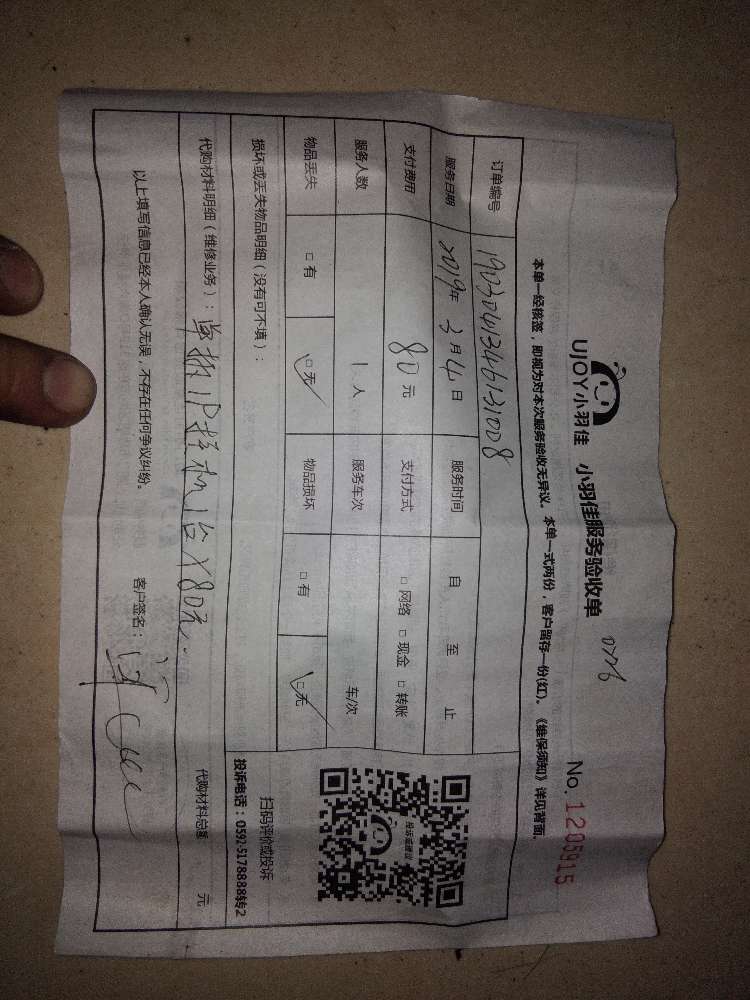 UJOY小羽佳 小羽佳服务验收单
No.1205915
本单一经核签，即视为对本次服务验收无异议。本单一式两份，客户留存一份(红)。《维保须知》详见背面。
订单编号
服务日期 2019年 3月4日 服务时间 自 至 止
支付费用 80元 支付方式 □网络 □现金 □转账
服务人数 1人 服务车次 车/次
物品丢失 □有 □无 物品损坏 □有 □无
投诉或建议
扫码评价或投诉
投诉电话：0592-5178888转2
损坏或丢失物品明细（没有可不填）：
代购材料明细（维修业务）： 80元. 代购材料总额 元
以上填写信息已经本人确认无误，不存在任何争议纠纷。 客户签名：